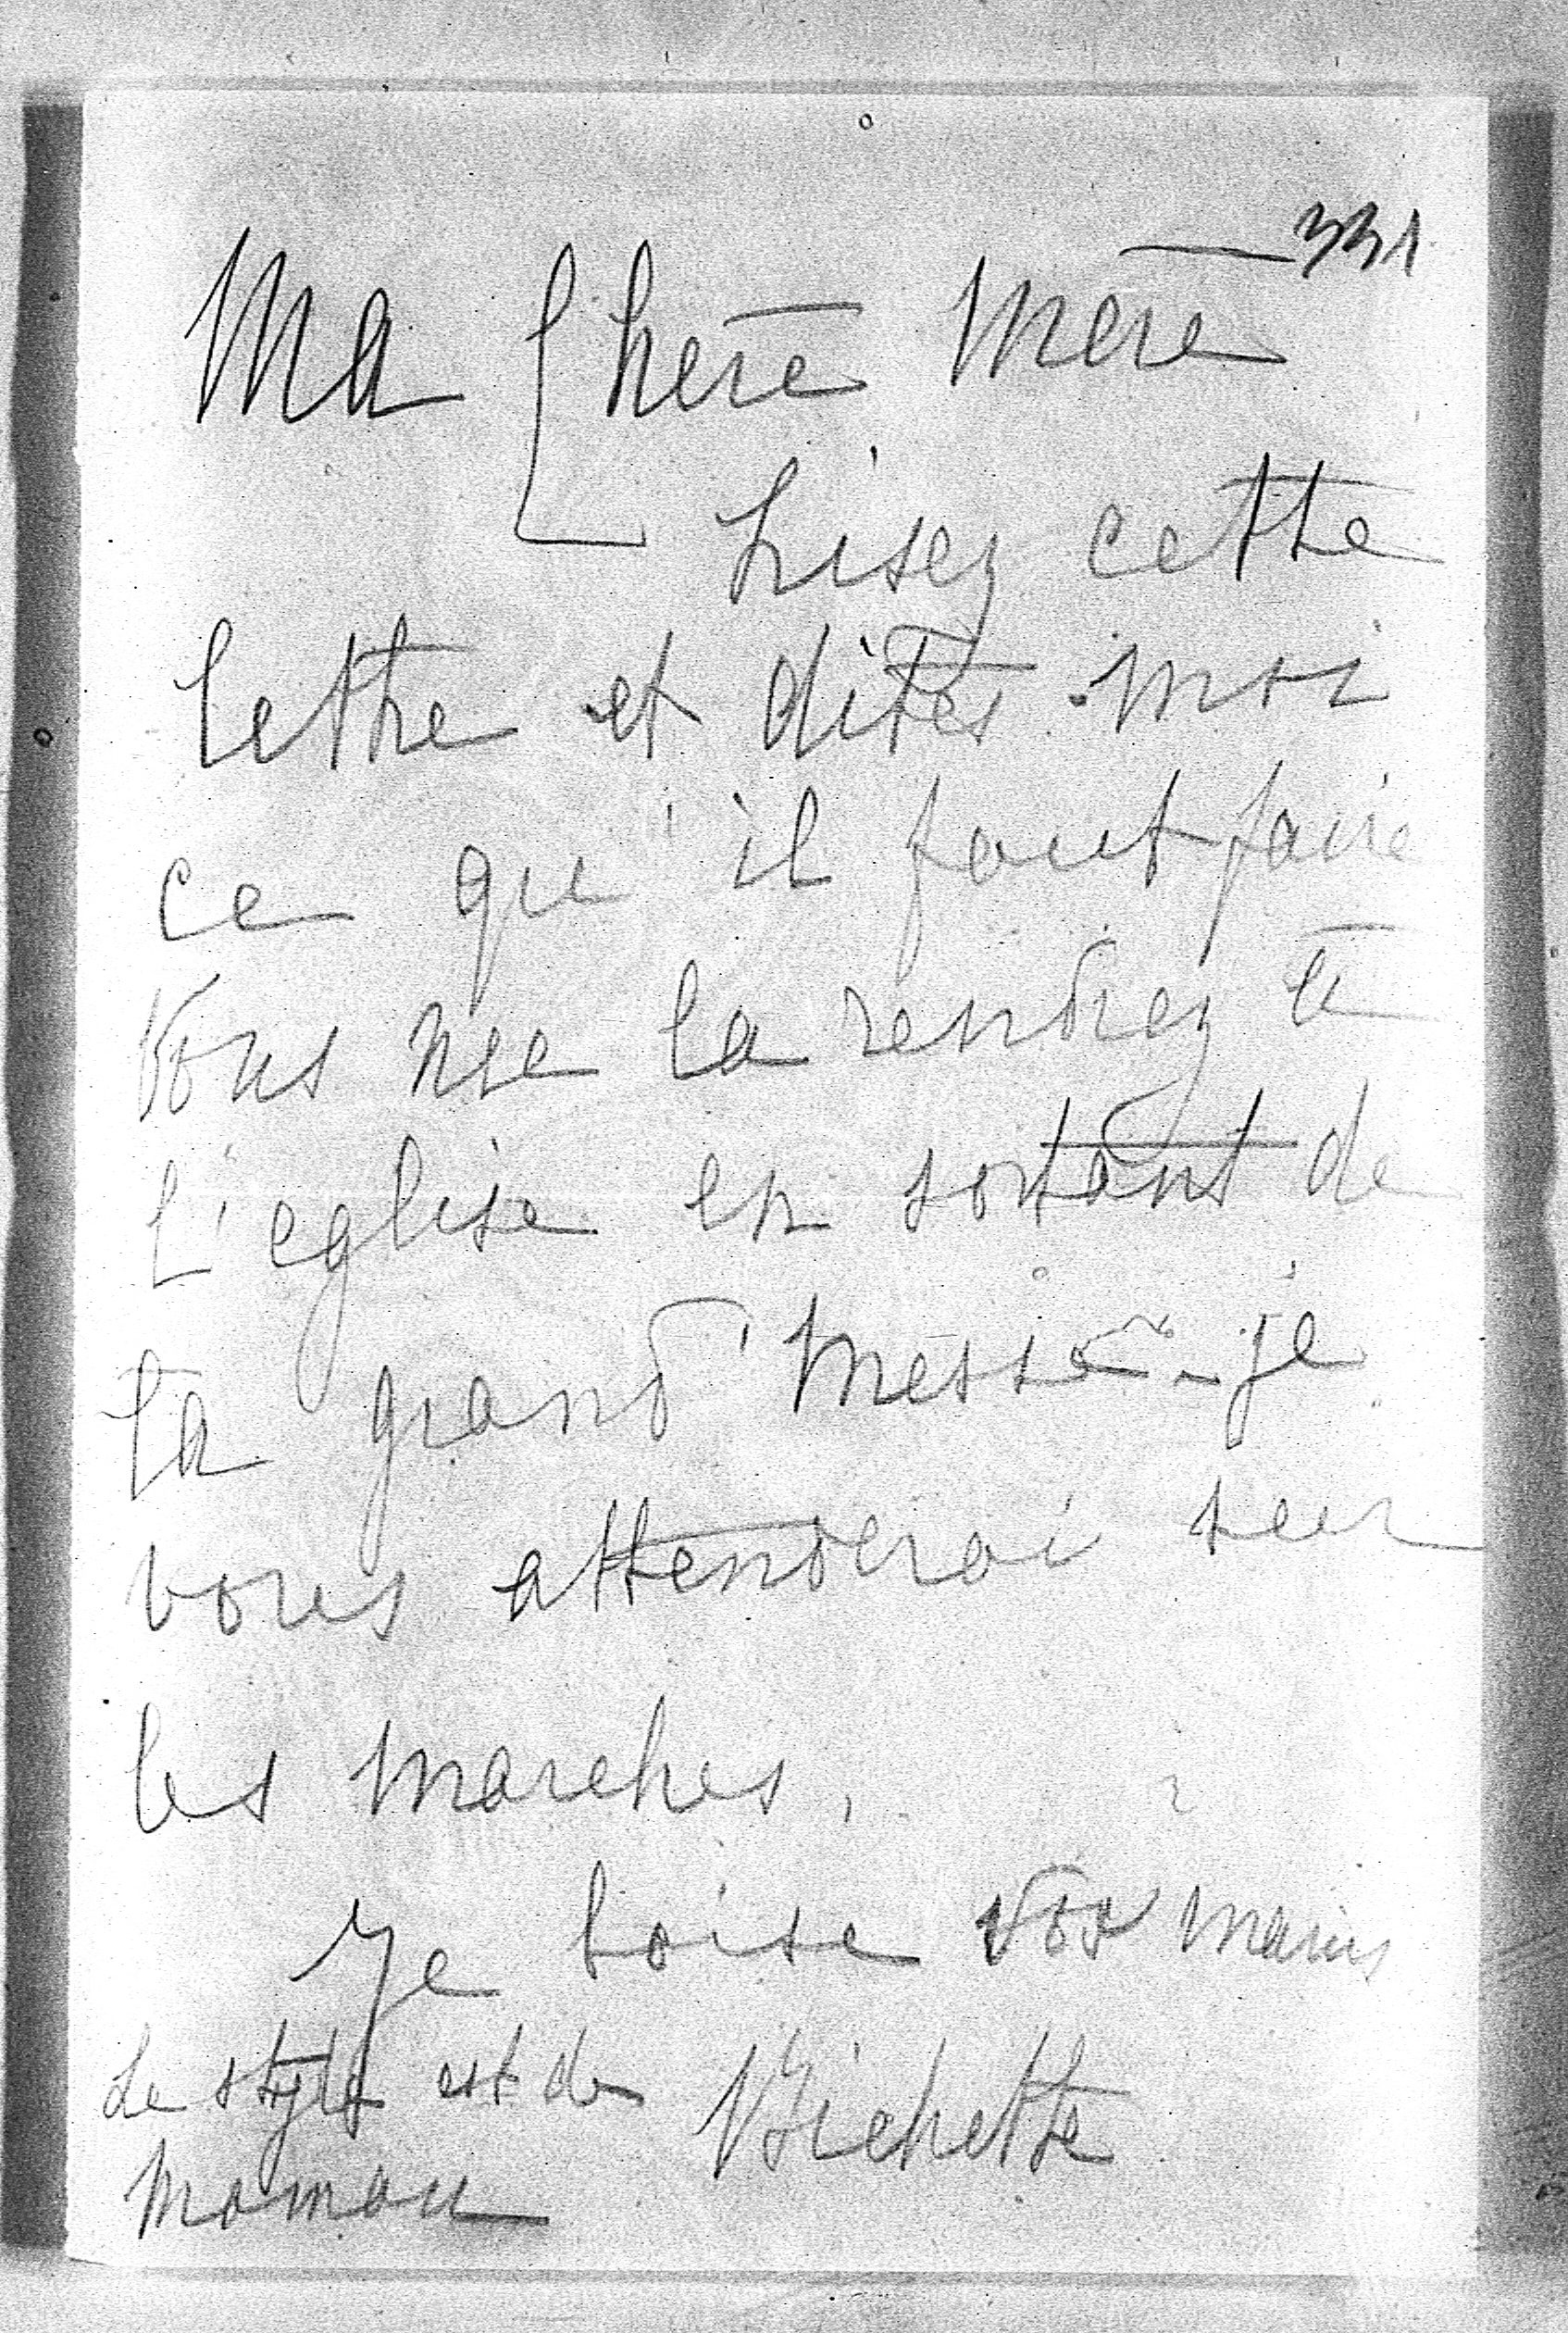 331
Ma Chere Mere
Lisez cette
lettre et dites moi
ce qu'il faut faire
Vous me la rendrez à
L'eglise en sortant de
la grand' Messe - je
vous attenderai sur
les marches,
Je baise vos mains
Bichette
Le style est de
Maman